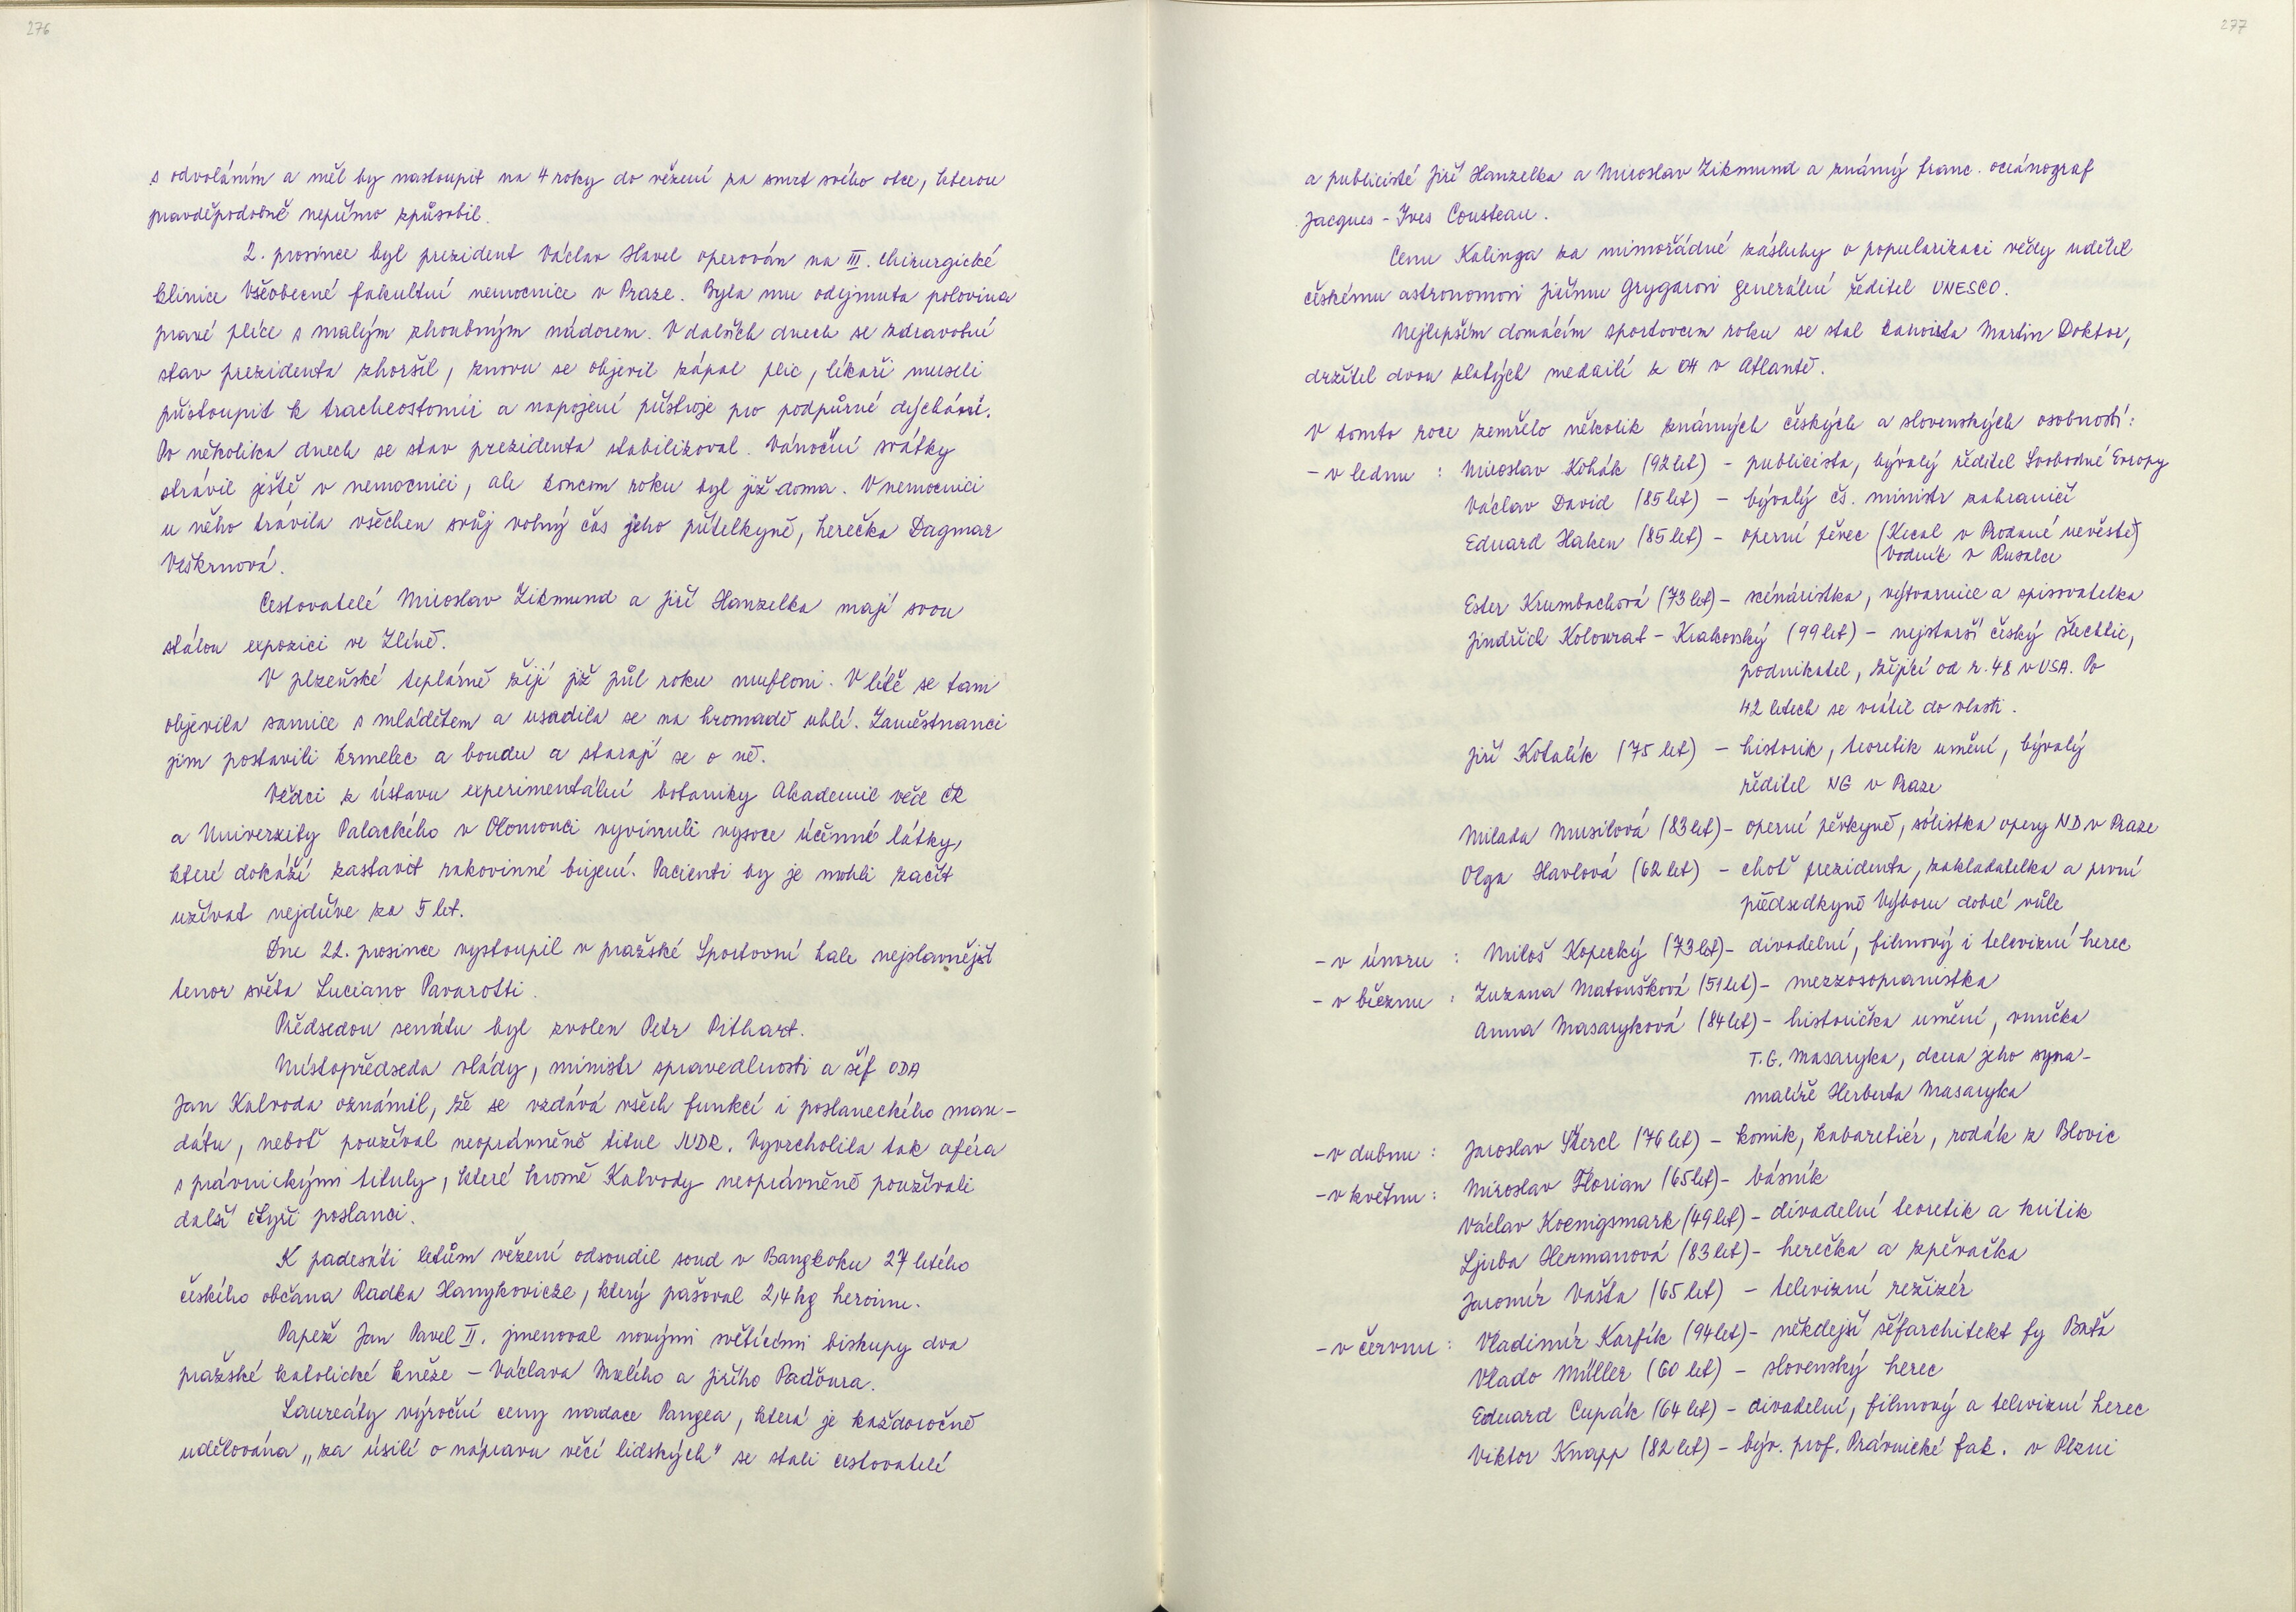 276
s odvoláním a měl by nastoupit na 4 roky do vězení za smrt svého otce, kterou
pravděpodobně nepřímo způsobil.
2. prosince byl prezident Václav Havel operován na III. chirurgické
klinice Všeobecné fakultní nemocnice v Praze. Byla mu odejmuta polovina
pravé plíce s malým zhoubným nádorem. V dalších dnech se zdravotní
stav prezidenta zhoršil, znovu se objevil zápal plic, lékaři museli
přistoupit k tracheostomii a napojení přístroje pro podpůrné dýchání.
Po několika dnech se stav prezidenta stabilizoval. Vánoční svátky
strávil ještě v nemocnici, ale koncem roku byl již doma. V nemocnici
u něho trávila všechen svůj volný čas jeho přítelkyně, herečka Dagmar
Veškrnová.
Cestovatelé Miroslav Zikmund a Jiří Hanzelka mají svou
stálou expozici ve Zlíně.
V plzeňské teplárně žijí již půl roku mufloni. V létě se tam
objevila samice s mládětem a usadila se na hromadě uhlí. Zaměstnanci
jim postavili krmelec a boudu a starají se o ně.
Vědci z ústavu experimentální botaniky Akademie věd ČR
a Univerzity Palackého v Olomouci vyvinuli vysoce účinné látky,
které dokáží zastavit rakovinné bujení. Pacienti by je mohli začít
užívat nejdříve za 5 let.
Dne 22. prosince vystoupil v pražské Sportovní hale nejslavnější
tenor světa Luciano Pavarotti.
Předsedou senátu byl zvolen Petr Pithart.
Místopředseda vlády, ministr spravedlnosti a šéf ODA
Jan Kalvoda oznámil, že se vzdává všech funkcí i poslaneckého man-
dátu, neboť používal neoprávněně titul JUDR. Vyvrcholila tak aféra
s právnickými tituly, které kromě Kalvody neoprávněně používali
další čtyři poslanci.
K padesáti letům vězení odsoudil soud v Bangkoku 27 letého
českého občana Radka Hanykovicze, který pašoval 2,4 kg heroinu.
Papež Jan Pavel II. jmenoval novými světícími biskupy dva
pražské katolické kněze – Václava Malého a Jiřího Paďoura.
Laureáty výroční ceny nadace Pangea, která je každoročně
udělována „za úsilí o nápravu věcí lidských" se stali cestovatelé
277
a publicisté Jiří Hanzelka a Miroslav Zikmund a známý franc. oceánograf
Jacques – Yves Cousteau.
Cenu Kalinga za mimořádné zásluhy o popularizaci vědy udělil
českému astronomovi Jiřímu Grygarovi generální ředitel UNESCO.
Nejlepším domácím sportovcem roku se stal kanoista Martin Doktor,
držitel dvou zlatých medailí z OH v Atlantě.
V tomto roce zemřelo několik známých českých a slovenských osobností:
– v lednu : Miroslav Kohák (92 let) – publicista, bývalý ředitel Svobodné Evropy
Václav David (85 let) – bývalý čs. ministr zahraničí
Eduard Haken (85 let) – operní pěvec (Kecal v Prodané nevěstě)
(Vodník v Rusalce
Ester Krumbachová (73 let) – scénáristka, výtvarnice a spisovatelka
Jindřich Kolowrat – Krakovský (99 let) – nejstarší český šlechtic,
podnikatel, žijící od r. 48 v USA. Po
42 letech se vrátil do vlasti.
Jiří Kotalík (75 let) – historik, teoretik umění, bývalý
ředitel NG v Praze
Milada Musilová (83 let) – operní pěvkyně, sólistka opery ND v Praze
Olga Havlová (62 let) – choť prezidenta, zakladatelka a první
předsedkyně Výboru dobré vůle
– v únoru : Miloš Kopecký (73 let) – divadelní, filmový i televizní herec
– v březnu : Zuzana Matoušková (51 let) – mezzosopranistka
Anna Masaryková (84 let) – historička umění, vnučka
T. G. Masaryka, dcera jeho syna –
malíře Herberta Masaryka
– v dubnu : Jaroslav Štercl (76 let) – komik, kabaretiér, rodák z Blovic
– v květnu : Miroslav Florian (65 let) – básník
Václav Koenigsmark (49 let) – divadelní teoretik a kritik
Ljuba Hermanová (83 let) – herečka a zpěvačka
Jaromír Vašta (65 let) – televizní režizér
– v červnu : Vladimír Karfík (94 let) – někdejší šéfarchitekt fy Baťa
Vlado Müller (60 let) – slovenský herec
Eduard Cupák (64 let) – divadelní, filmový a televizní herec
Viktor Knapp (82 let) – býv. prof. Právnické fak. v Plzni